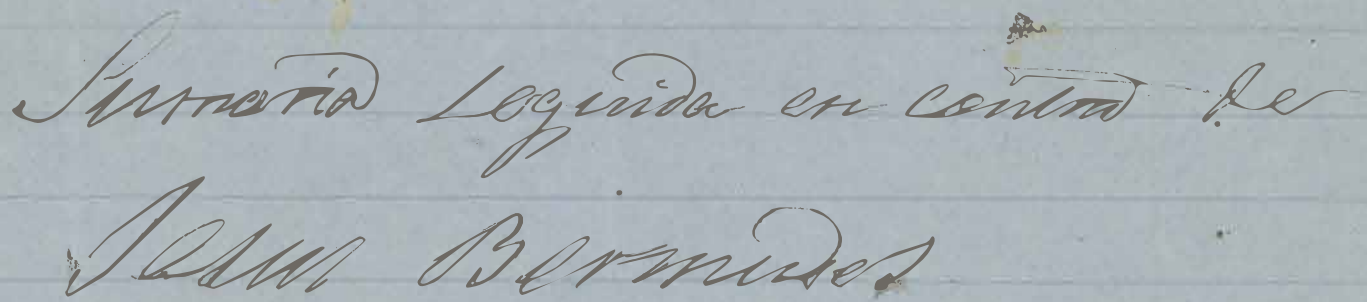 Sumaria Seguida en contra de
Jesus Bermudes